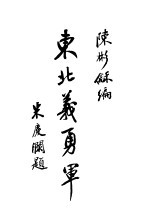 陳彬龢編
東北義勇軍
朱慶瀾題